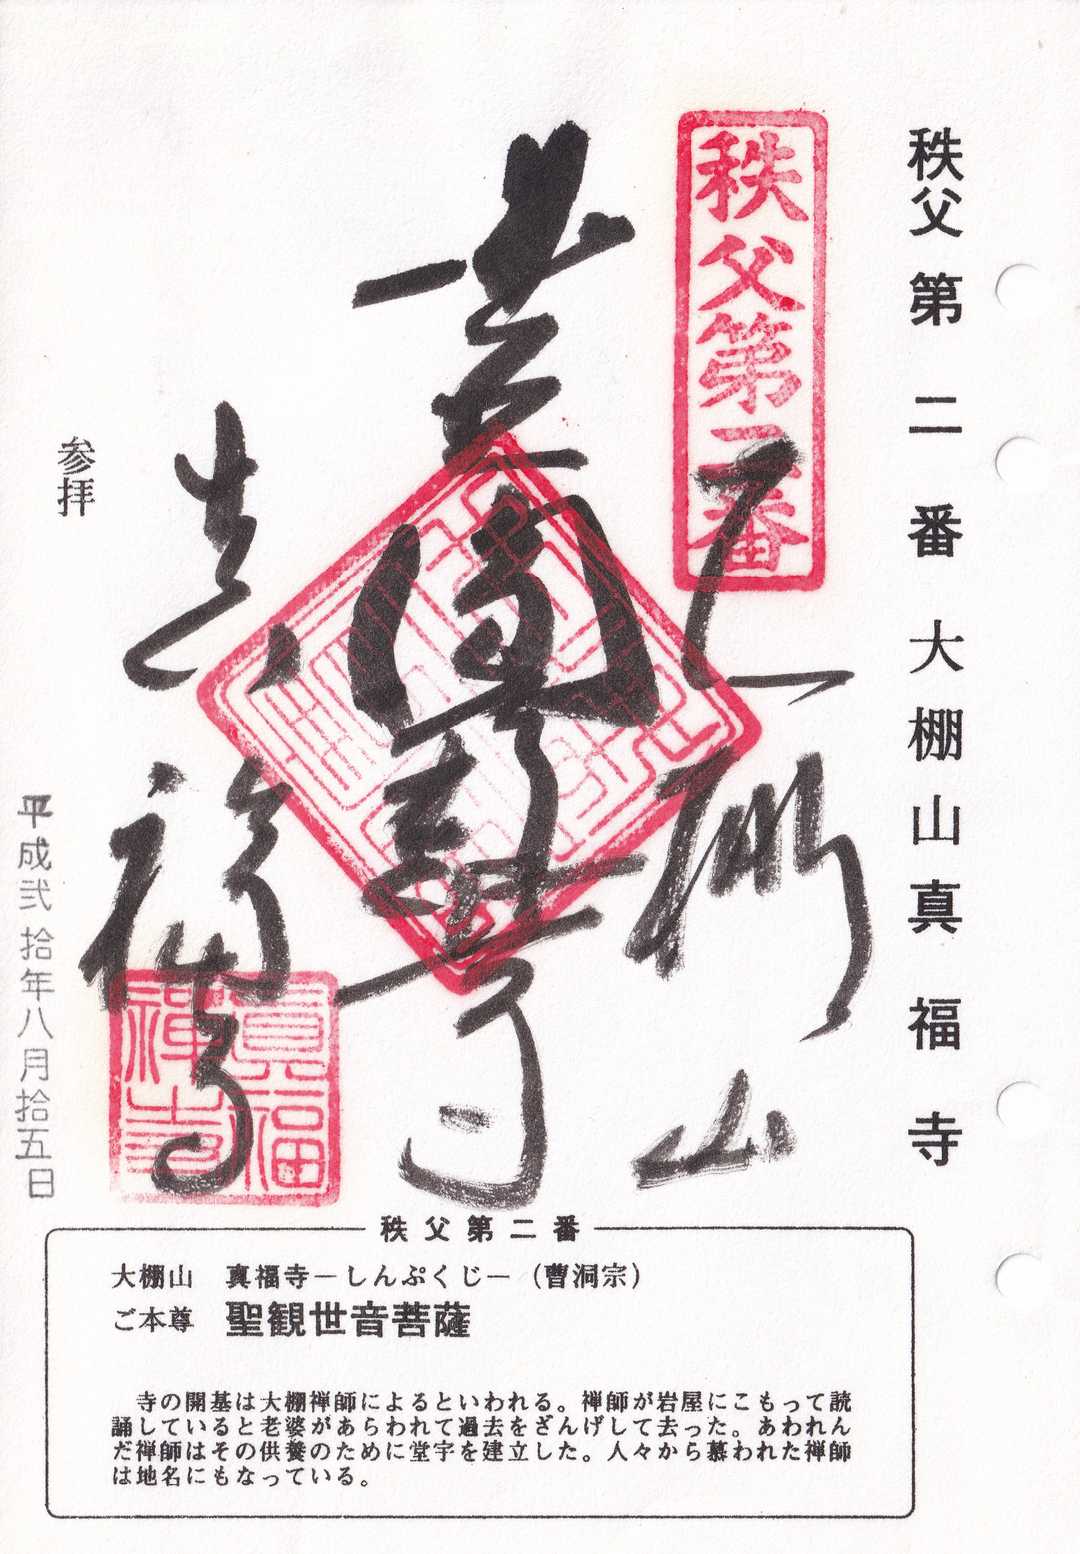 秩父第二番大棚山真福寺
秩父第二番
大棚山
真福寺
眞福
禪寺
参拝
平成弐拾年八月拾五日
秩父第二番
大棚山 真福寺－しんぷくじ－（曹洞宗）
ご本尊 聖観世音菩薩
寺の開基は大棚禅師によるといわれる。禅師が岩屋にこもって読
誦していると老婆があらわれて過去をざんげして去った。あわれん
だ禅師はその供養のために堂宇を建立した。人々から慕われた禅師
は地名にもなっている。